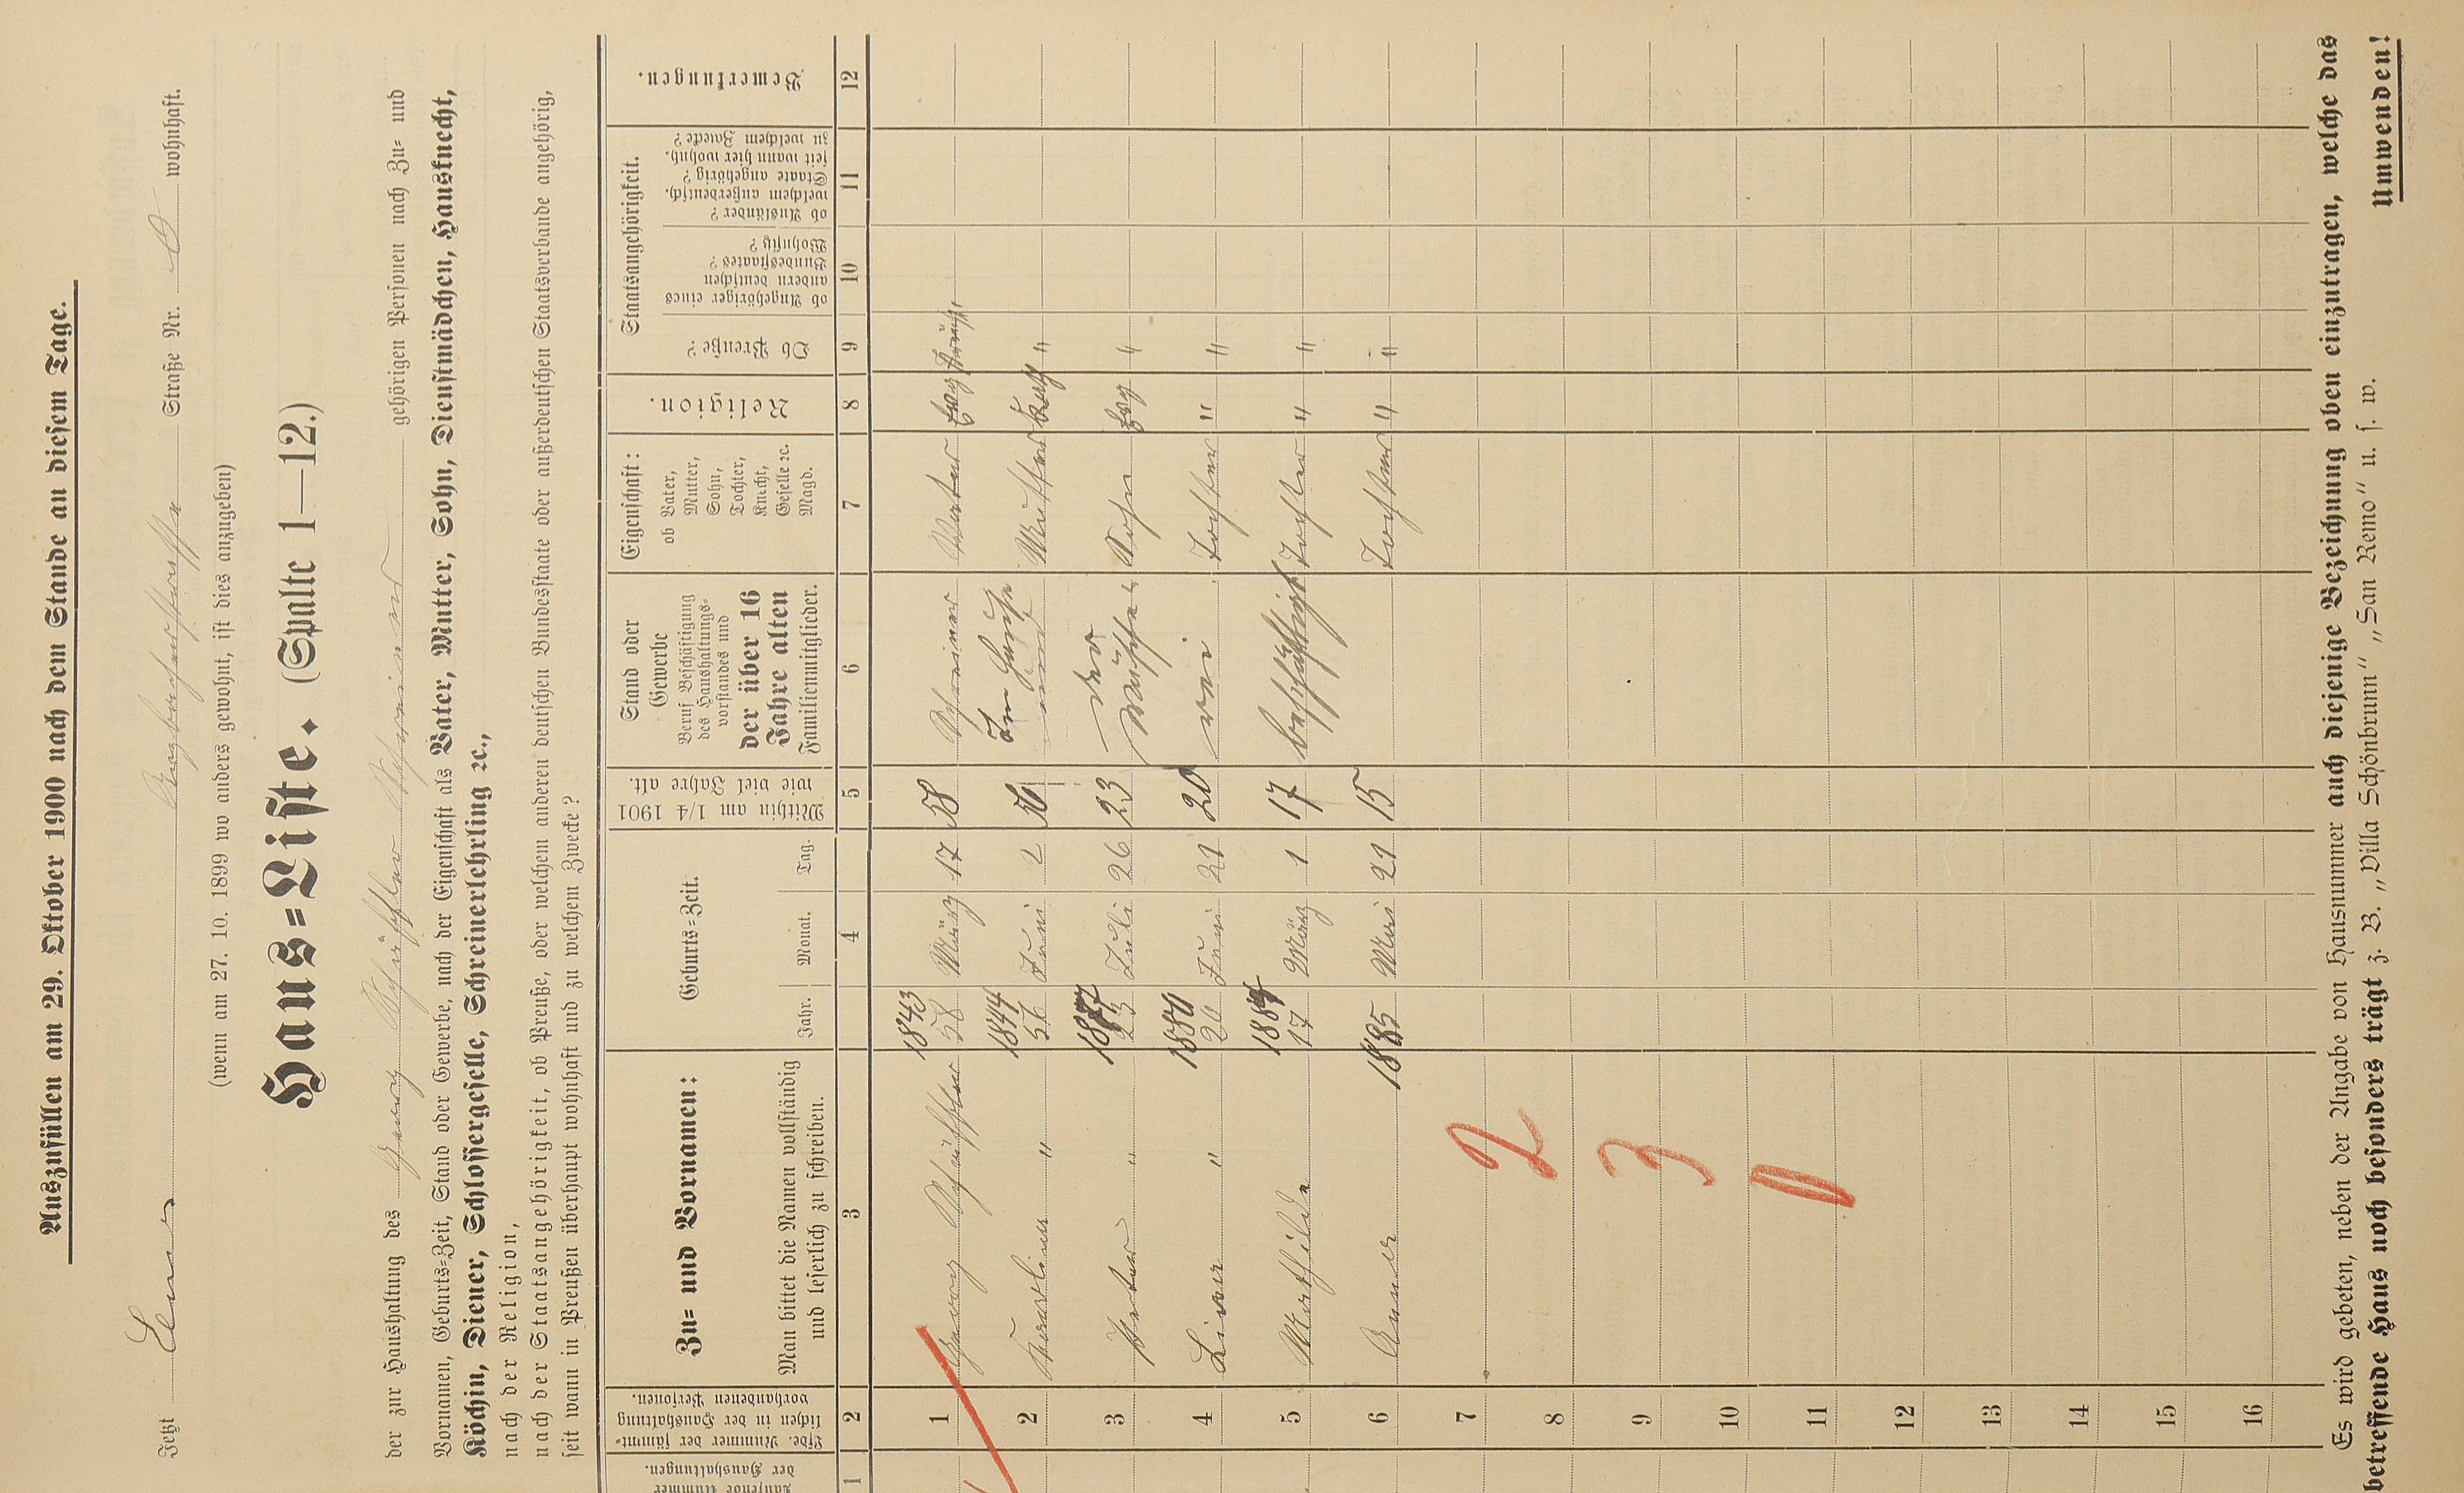 Auszufüllen am 29. Oktober 1900 nach dem Stande an diesem Tage.
Jetzt Ems Straße Nr. wohnhaft.
(wenn am 27. 10. 1899 wo anders gewohnt, ist dies anzugeben)
Haus=Liste. (Spalte 1—12.)
der zur Haushaltung des Georg Schreiner gehörigen Personen nach Zu= und
Vornamen, Geburts=Zeit, Stand oder Gewerbe, nach der Eigenschaft als Vater, Mutter, Sohn, Dienstmädchen, Hausknecht,
Köchin, Diener, Schlossergeselle, Schreinerlehrling ꝛc.,
nach der Religion,
nach der Staatsangehörigkeit, ob Preuße, oder welchem anderen deutschen Bundesstaate oder außerdeutschen Staatsverbande angehörig,
seit wann in Preußen überhaupt wohnhaft und zu welchem Zwecke?
Laufende Nummer
der Haushaltungen.
Lfde. Nummer der sämmt=
lichen in der Haushaltung
vorhandenen Personen.
Zu= und Vornamen:
Man bittet die Namen vollständig
und leserlich zu schreiben.
Geburts=Zeit.
Jahr. Monat. Tag.
Mithin am 1/4 1901
wie viel Jahre alt.
Stand oder
Gewerbe
Beruf Beschäftigung
des Haushaltungs=
vorstandes und
der über 16
Jahre alten
Familienmitglieder.
Eigenschaft:
ob Vater,
Mutter,
Sohn,
Tochter,
Knecht,
Geselle ꝛc.
Magd.
Religion.
Staatsangehörigkeit.
Ob Preuße?
ob Angehöriger eines
andern deutschen
Bundesstaates?
Wohnsitz?
ob Ausländer?
welchem außerdeutsch.
Staate angehörig?
seit wann hier wohnh.
zu welchem Zwecke?
Bemerkungen.
1 2 3 4 5 6 7 8 9 10 11 12
1 Georg 1843 58 März 17 58 Schreiner Vater Evg
2 " 1844 56 Juni 2 56 Im Hause Mutter Kath "
3 Peter " 1877 23 Juli 26 23 Sohn Evg "
4 Lina " 1880 20 Juni 21 20 Tochter " "
5 Mathilde 1884 17 März 1 17 beschäftigt Tochter " "
6 Anna 1885 Mai 21 15 Tochter " "
7
8
9
10
11
12
13
14
15
16
2
3
0
Es wird gebeten, neben der Angabe von Hausnummer auch diejenige Bezeichnung oben einzutragen, welche das
betreffende Haus noch besonders trägt z. B. „Villa Schönbrunn" „San Remo" u. s. w.
Umwenden!